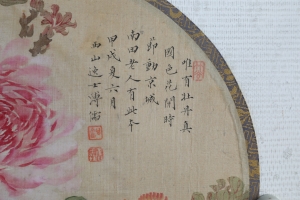 唯有牡丹真
國色花開時
節動京城
南田老人有此本
甲戌夏六月
西山逸士溥儒